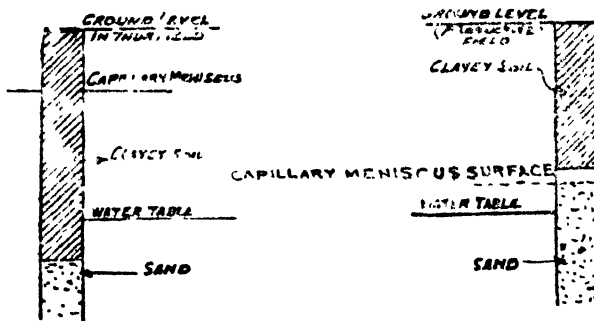 GROUND LEVEL
IN THUR FIELD
CAPILLARY MENISCUS
CLAYEY SOIL
WATER TABLE
SAND
GROUND LEVEL
FIELD
CLAYEY SOIL
CAPILLARY MENISCUS SURFACE
WATER TABLE
SAND